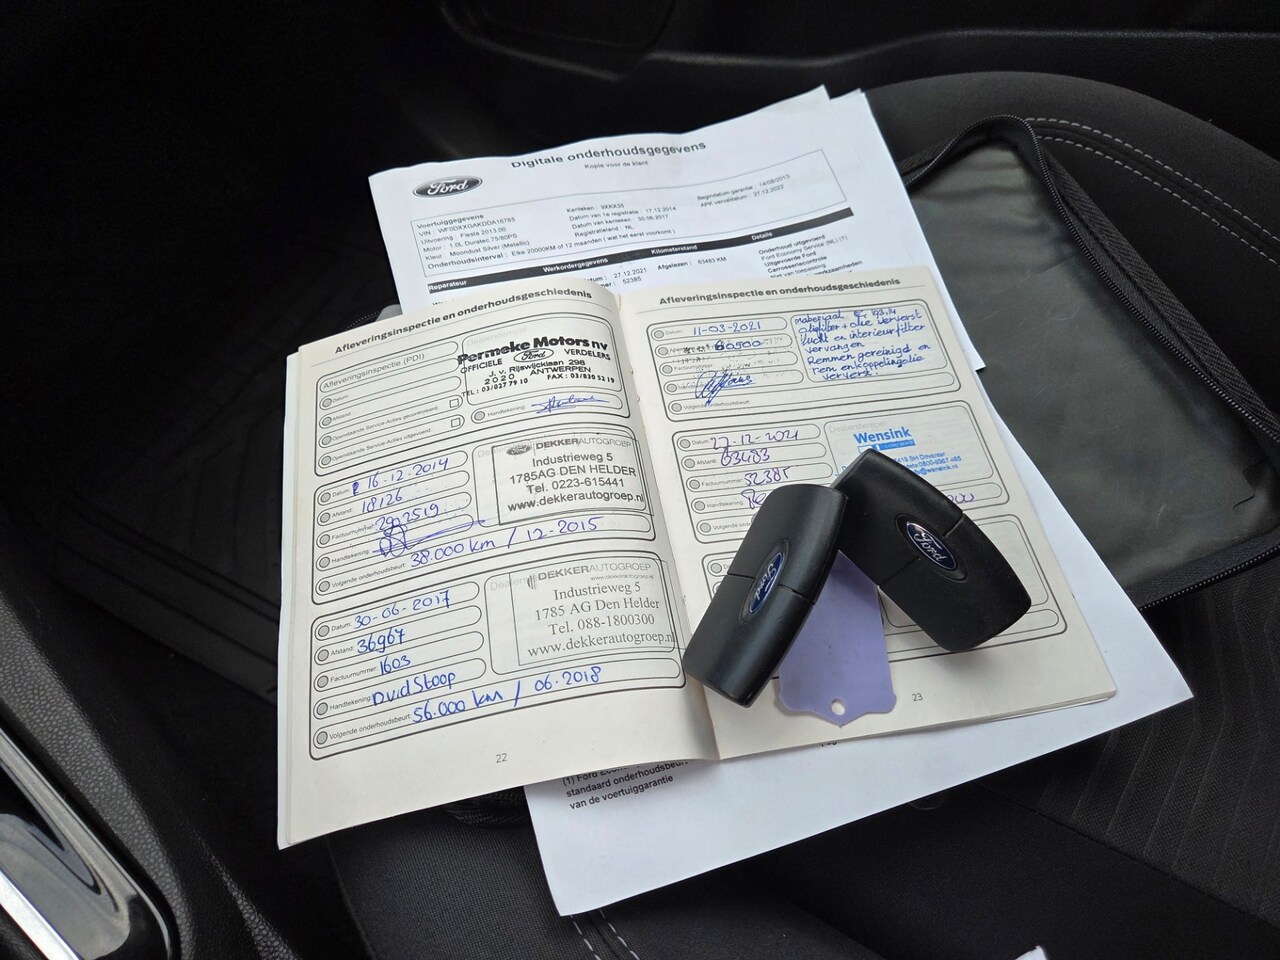 Digitale onderhoudsgegevens
Kopie voor de klant
Ford
Voertuiggegevens
Uitvoering : Fiesta 2013.00
Motor : 1.0L Duratec 75/80PS
Kleur : Moondust Silver (Metallic)
Onderhoudsinterval : Elke 20000KM of 12 maanden ( wat het eerst voorkomt )
Datum van 1e registratie : 17.12.2014
Datum van kenteken : 30.06.2017
Registratieland : NL
Begindatum garantie : 14/08/2013
APK vervaldatum : 27.12.2022
Reparateur
Werkordergegevens
Kilometerstand
Details
27.12.2021
52385
Afgelezen : 63483 KM
Onderhoud uitgevoerd
Ford Economy Service (NL) (1)
Uitgevoerde Ford
Carrosseriecontrole
Niet van toepassing
Afleveringsinspectie en onderhoudsgeschiedenis
Afleveringsinspectie (PDI)
Datum:
Afstand:
Openstaande Service Acties gecontroleerd:
Openstaande Service Acties uitgevoerd:
Permeke Motors nv
OFFICIELE Ford VERDELERS
J. v. Rijswijcklaan 298
2020 ANTWERPEN
TEL : 03/827 79 10 FAX : 03/830 52 19
Handtekening:
Datum: 16-12-2014
Afstand: 18126
Factuurnummer: 2912519
Handtekening:
Volgende onderhoudsbeurt: 38.000 km / 12-2015
DEKKERAUTOGROEP
Industrieweg 5
1785AG DEN HELDER
Tel. 0223-615441
www.dekkerautogroep.nl
Datum: 30-06-2017
Afstand: 36967
Factuurnummer: 1603
Handtekening: David Stoop
Volgende onderhoudsbeurt: 56.000 km / 06-2018
DEKKERAUTOGROEP
www.dekkerautogroep.nl
Industrieweg 5
1785 AG Den Helder
Tel. 088-1800300
www.dekkerautogroep.nl
22
Afleveringsinspectie en onderhoudsgeschiedenis
Datum: 11-03-2021
60500
Volgende onderhoudsbeurt:
oliefilter + olie ververst
lucht en interieurfilter
vervangen
Remmen gereinigd en
rem en koppelingolie
ververst.
Datum: 27-12-2021
Afstand: 63483
Factuurnummer: 52385
Handtekening:
Wensink
Ford
Ford
23
(1) Ford
standaard onderhoudsbeurt
van de voertuiggarantie